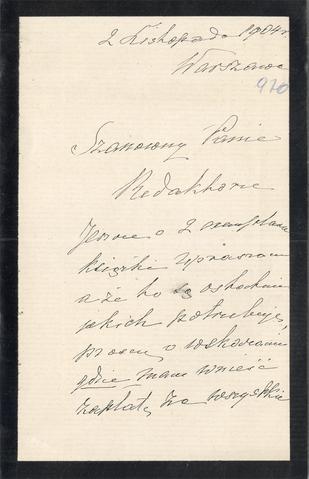 2 Listopada 1904 r.
Warszawa
970
Szanowny Panie
Redaktorze
Jeszcze o 2 exemplarze
książki upraszam
a że to są ostatnie
jakich potrzebuję,
proszę o wskazanie
gdzie mam wnieść
zapłatę za wszystkie